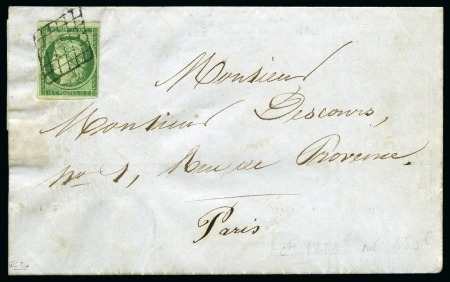 Monsieur
Monsieur Descours,
no 1, Rue de Provence.
Paris